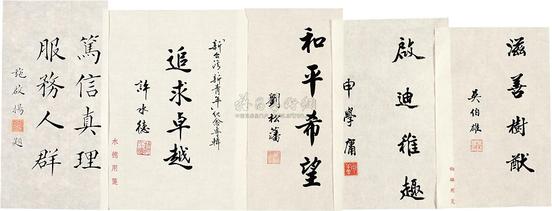 滋善樹猷
吳伯雄
啟迪稚趣
申學庸
和平希望
劉松藩
新台灣新青年紀念專輯
追求卓越
許水德
水德用箋
篤信真理
服務人群
施啟揚題